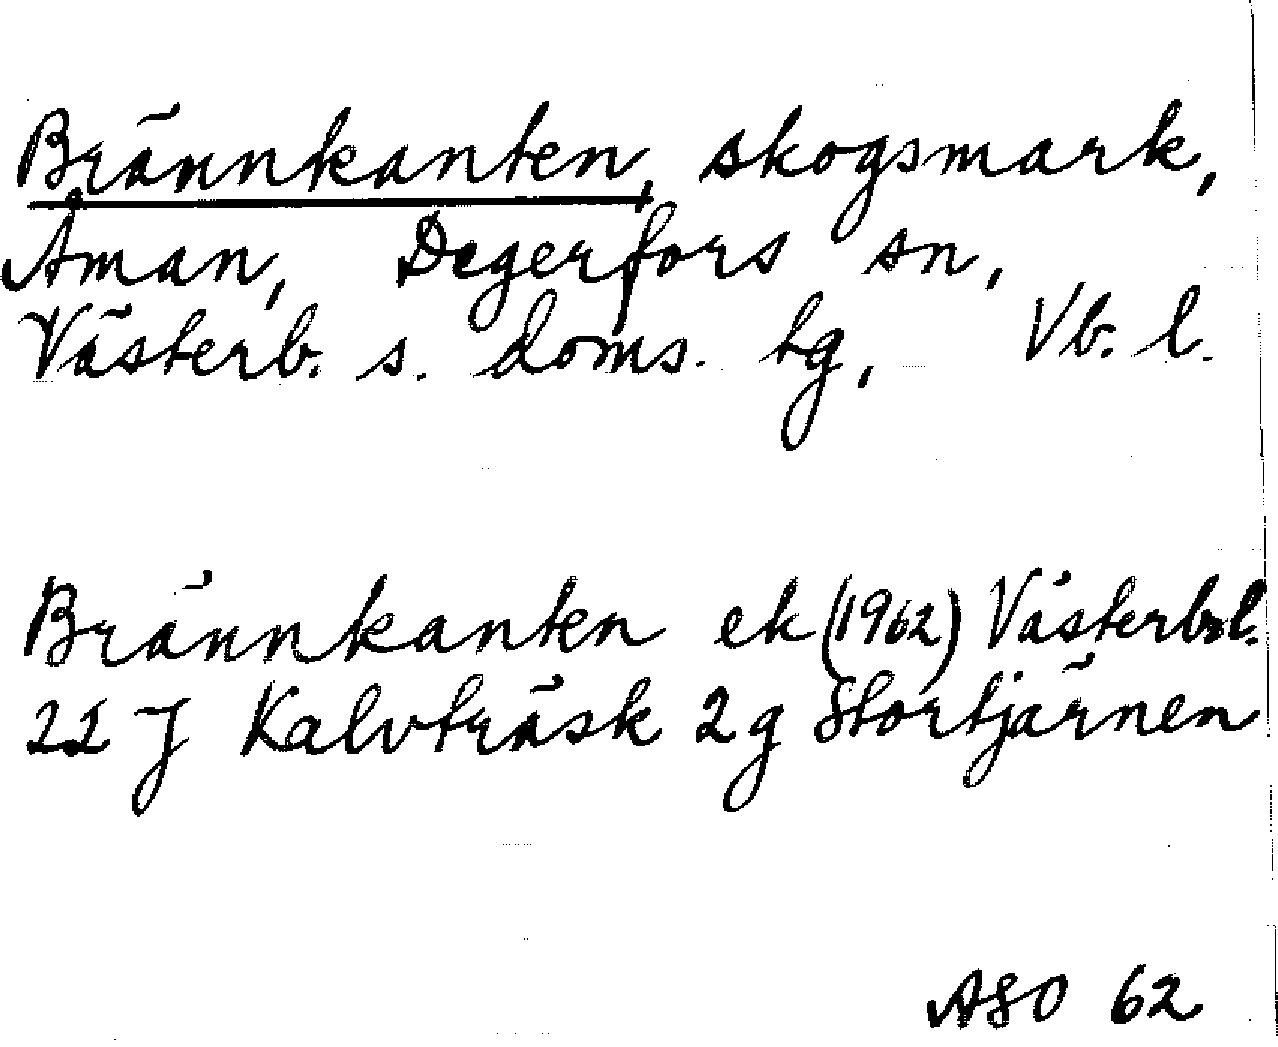 Brännkanten, skogsmark,
Åman, Degerfors sn,
Västerb. s. doms. tg, Vb. l.
Brännkanten ek (1962) Västerb. l.
22 J Kalvträsk 2g Stortjärnen
ASO 62